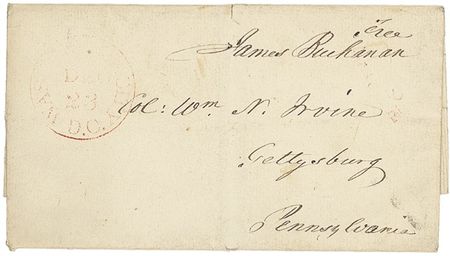 Free
James Buchanan
23
D.C.
Col: Wm. N. Irvine
Gettysburg
Pennsylvania